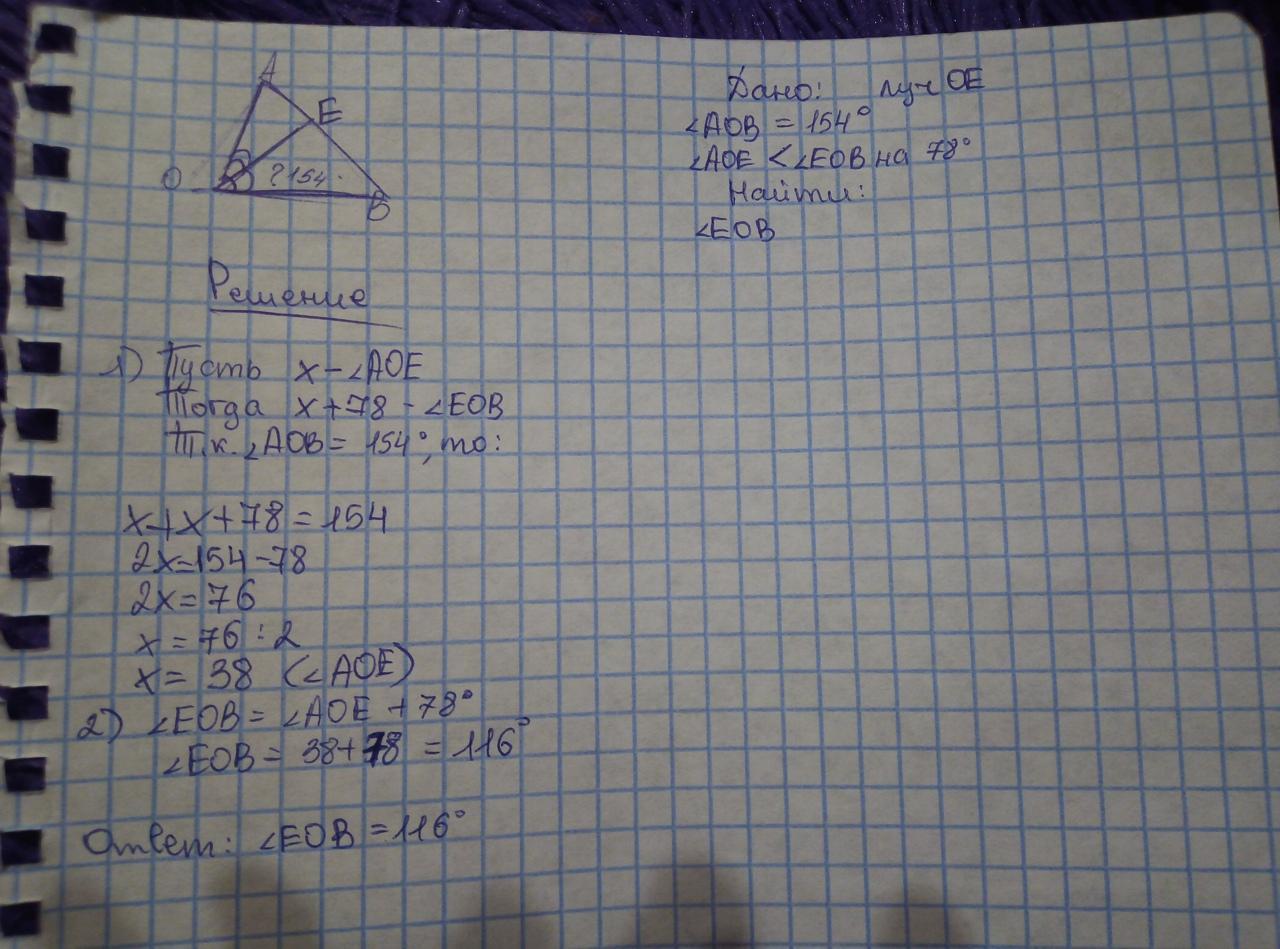 A
E
O ? 154
B
Дано: луч OE
∠AOB = 154°
∠AOE < ∠EOB на 78°
Найти:
∠EOB
Решение
1) Пусть x - ∠AOE
Тогда x + 78 - ∠EOB
Т.к. ∠AOB = 154°, то:
x + x + 78 = 154
2x = 154 - 78
2x = 76
x = 76 : 2
x = 38 (∠AOE)
2) ∠EOB = ∠AOE + 78°
∠EOB = 38 + 78 = 116°
Ответ: ∠EOB = 116°